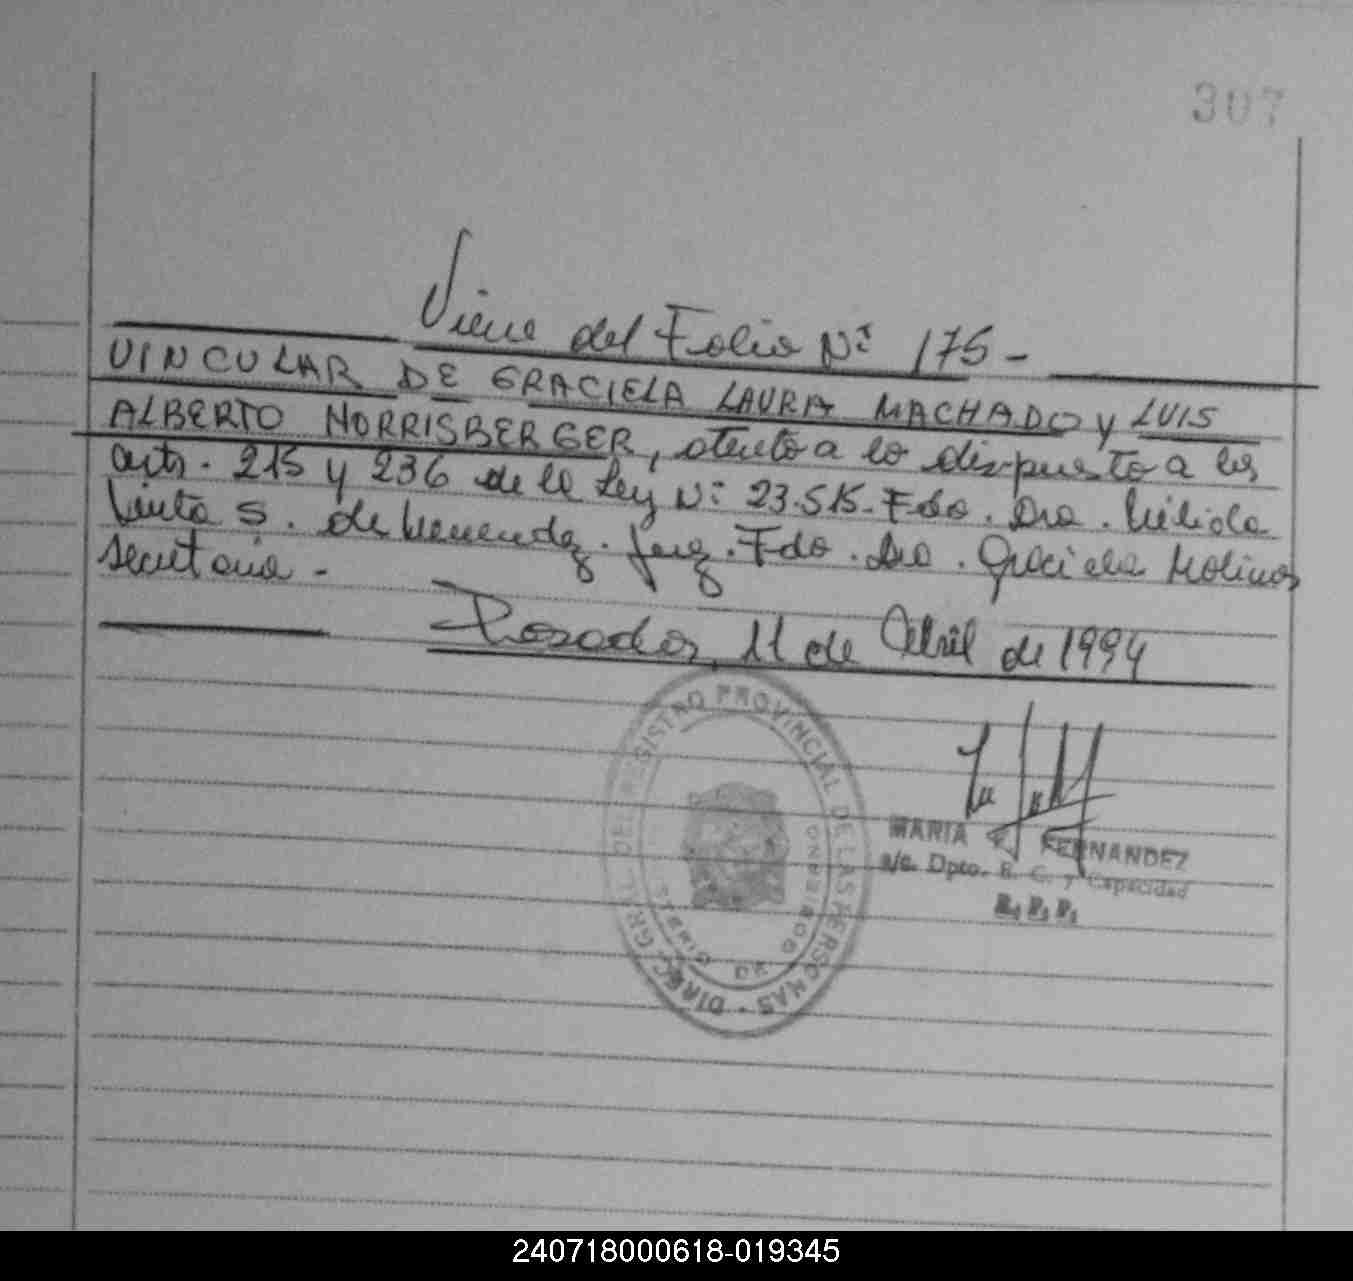 307
Viene del Folio Nº 175-
VINCULAR DE GRACIELA LAURA MACHADO y LUIS
ALBERTO NORRISBERGER, atento a lo dispuesto a los
arts. 215 y 236 de la Ley Nº 23.515. Fdo. Dra.
S. de Menendez. Juez. Fdo. Dra. Graciela Molinos
Secretaria.-
Posadas, 11 de Abril de 1994
DIREC. GRAL. DEL REGISTRO PROVINCIAL DE LAS PERSONAS
MARIA FERNANDEZ
a/c. Dpto. E. C. y Capacidad
R. P. P.
240718000618-019345